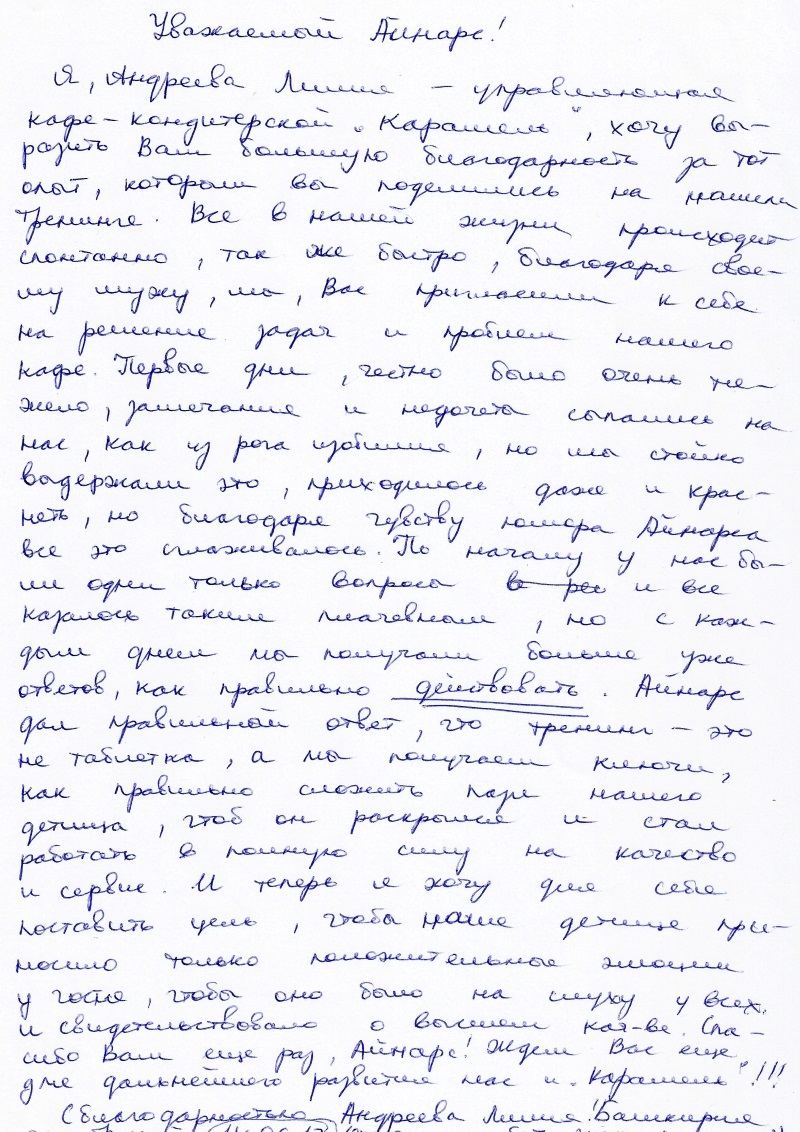 Уважаемый Айнарс!
Я, Андреева Лилия – управляющая
кафе-кондитерской „Карамель", хочу вы-
разить Вам большую благодарность за тот
опыт, которым вы поделились на нашем
тренинге. Все в нашей жизни происходит
спонтанно, так же быстро, благодаря свое-
му мужу, мы, Вас пригласили к себе
на решение задач и проблем нашего
кафе. Первые дни, честно было очень тя-
жело, замечания и недочеты сыпались на
нас, как из рога изобилия, но мы стойко
выдержали это, приходилось даже и крас-
неть, но благодаря чувству юмора Айнарса
все это сглаживалось. По началу у нас бы-
ли одни только вопросы в рес и все
казалось таким плачевным, но с каж-
дым днем мы получали больше уже
ответов, как правильно действовать. Айнарс
дал правильный ответ, что тренинг – это
не таблетка, а мы получаем ключи,
как правильно сложить пазл нашего
детища, чтоб он раскрылся и стал
работать в полную силу на качество
и сервис. И теперь я хочу для себя
поставить цель, чтобы наше детище при-
носило только положительные эмоции
у гостя, чтобы оно было на слуху у всех,
и свидетельствовало о высшем кач-ве. Спа-
сибо Вам еще раз, Айнарс! Ждем Вас еще
для дальнейшего развития нас и „Карамель"!!!
С благодарностью Андреева Лилия! Башкирия